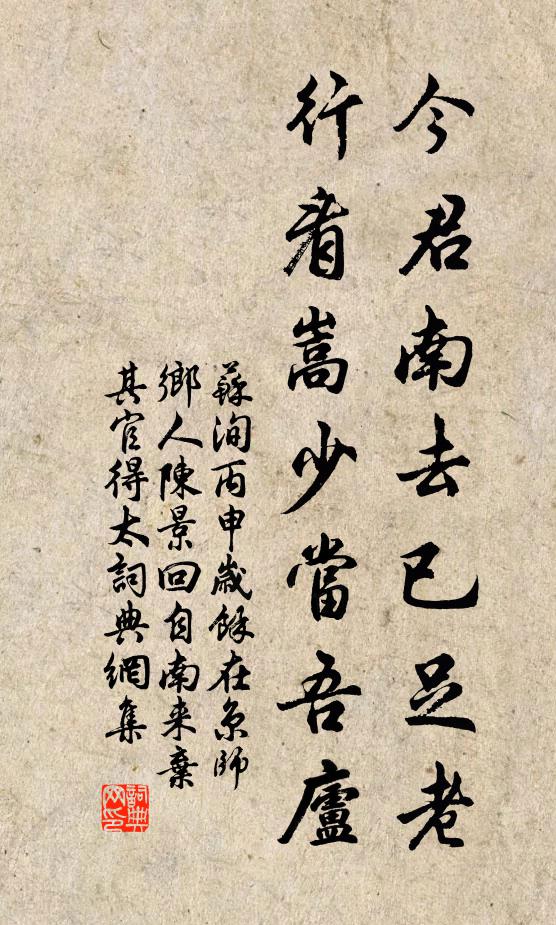 今君南去已足老
行看嵩少當吾廬
蘇洵丙申歲餘在京師
鄉人陳景回自南来棄
其官得太詞典網集
詞典
网印